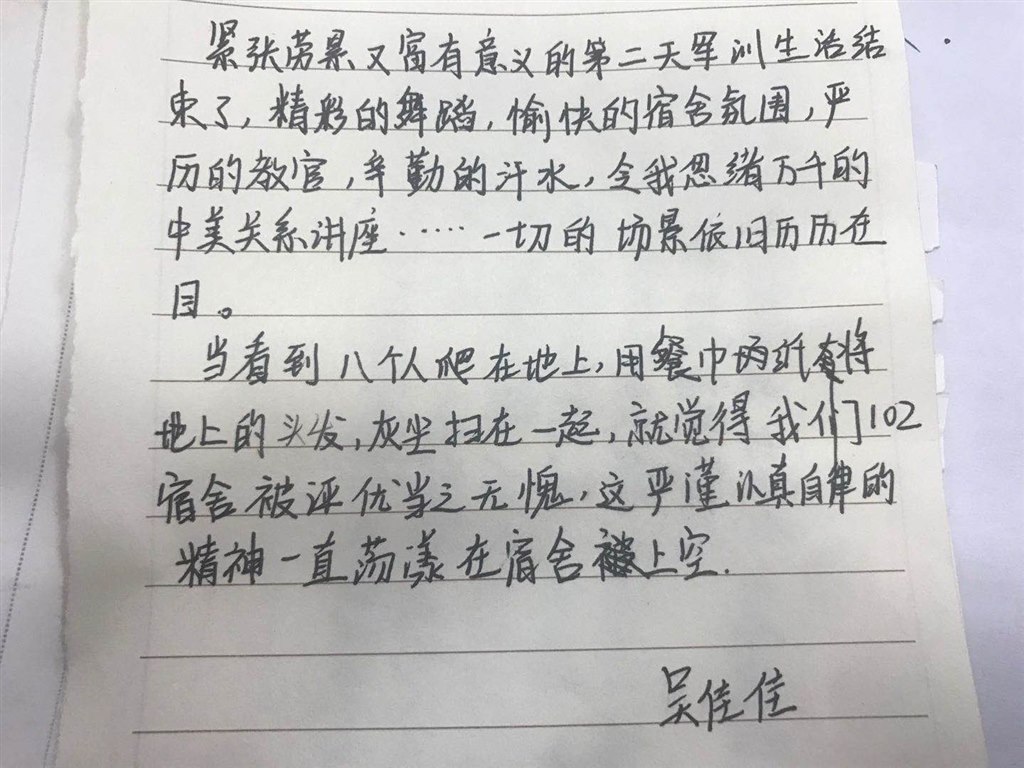 紧张劳累又富有意义的第二天军训生活结
束了，精彩的舞蹈，愉快的宿舍氛围，严
历的教官，辛勤的汗水，令我思绪万千的
中美关系讲座……一切的场景依旧历历在
目。
当看到八个人爬在地上，用餐巾两纸将
地上的头发，灰尘扫在一起，就觉得我们102
宿舍被评优当之无愧，这严谨认真自律的
精神一直荡漾在宿舍上空.
吴佳佳